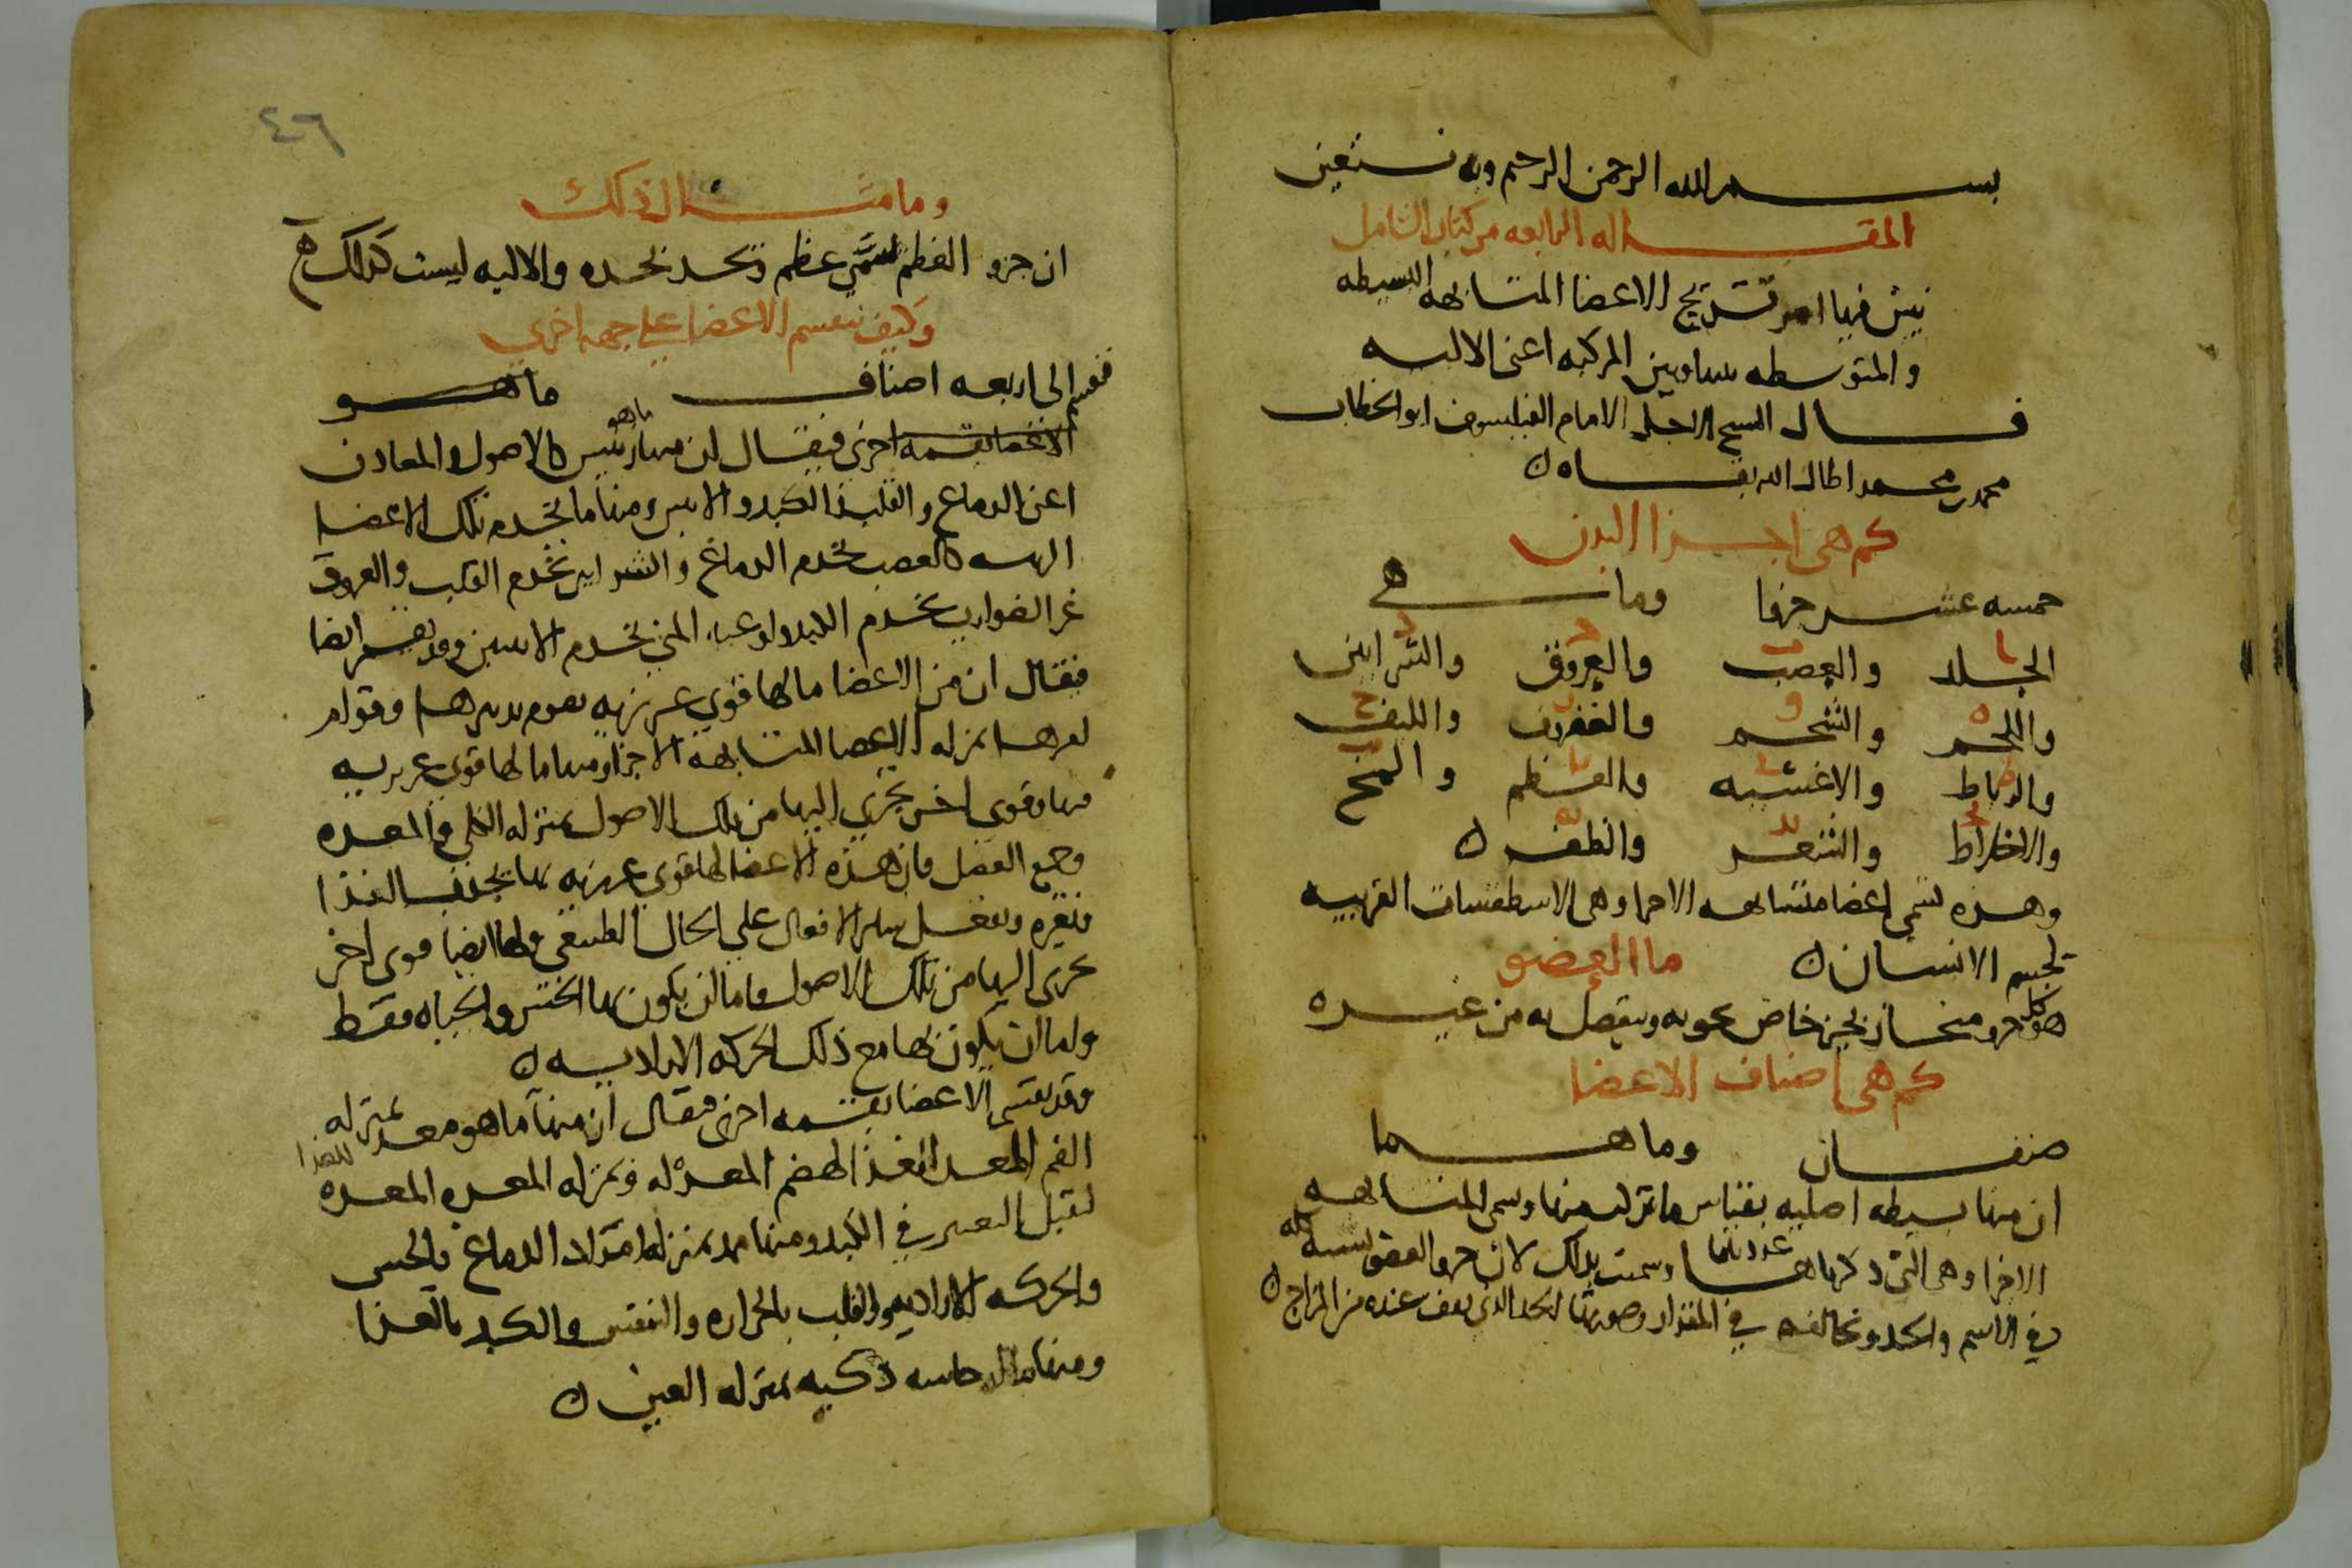 بسم الله الرحمن الرحيم وبه نستعين
المقاله الرابعه من كتاب الشامل
نبين فيها امر تشريح الاعضا المتشابهه البسيطه
والمتوسطه بينها وبين المركبه اعني الاليه
قال الشيخ الاجل الامام الفيلسوف ابو الخطاب
محمد بن محمد اطال الله بقاه
كم هي اجزا البدن
خمسه عشر جزوا وما هي
الجلد والعصب والعروق والشرايين
واللحم والشحم والغضروف والليف
والرباط والاغشيه والعظم والمخ
والاخلاط والشعر والظفر
وهذه تسمي اعضا متشابهه الاجزا وهي الاسطقسات القريبه
لجسم الانسان ما العضو
هو كل جزو منحاز بحيز خاص يحويه وينفصل به من غيره
كم هي اصناف الاعضا
صنفان وما هما
ان منها بسيطه اصليه بقياس ما تركب منها وتسمى المتشابهه
الاجزا وهي التي ذكرناها عددناها وسميت بذلك لان جزو العضو يشبه كله
في الاسم والحد ويخالفه في المقدار وصورتها الحد الذي يقف عنده من المزاج
٤٦
وما مثال ذلك
ان جزو العظم يسمى عظم ويحد بحده والاليه ليست كذلك
وكيف تنقسم الاعضا على جهه اخرى
فتنقسم الى اربعه اصناف ما هو
الاعضا بقسمه اخرى فيقال ان منها ما هو رئيس كالاصول والمعادن
اعني الدماغ والقلب والكبد والانثيين ومنها ما يخدم تلك الاعضا
الرئيسه كالعصب يخدم الدماغ والشرايين تخدم القلب والعروق
غير الضوارب تخدم الكبد واوعيه المني تخدم الانثيين وقد تقسم ايضا
فيقال ان من الاعضا ما لها قوى غريزيه يقوم بها تدبيرها وقوام
امرها بمنزله الاعضا المتشابهه الاجزا ومنها ما لها قوى غريزيه
فيها وقوى اخر تجري اليها من تلك الاصول بمنزله الكلى والمعده
وجميع العضل فان هذه الاعضا لها قوى غريزيه بها تجذب الغذا
وتغيره وتفعل سائر الافعال على الحال الطبيعي ولها ايضا قوى اخر
تجرى اليها من تلك الاصول فاما ان يكون بها الحس والحياه فقط
واما ان يكون بها مع ذلك الحركه الاراديه
وقد تقسم الاعضا بقسمه اخرى فيقال ان منها ما هو معد بمنزله
الفم المعد الغذا لهضم المعده له وبمنزله المعده المعده للغذا
لقبل التغير في الكبد ومنها ممد بمنزله امداد الدماغ بالحس
والحركه الاراديه والقلب بالحراره والنفس والكبد بالغذا
ومنها ما له حاسه ذكيه بمنزله العين